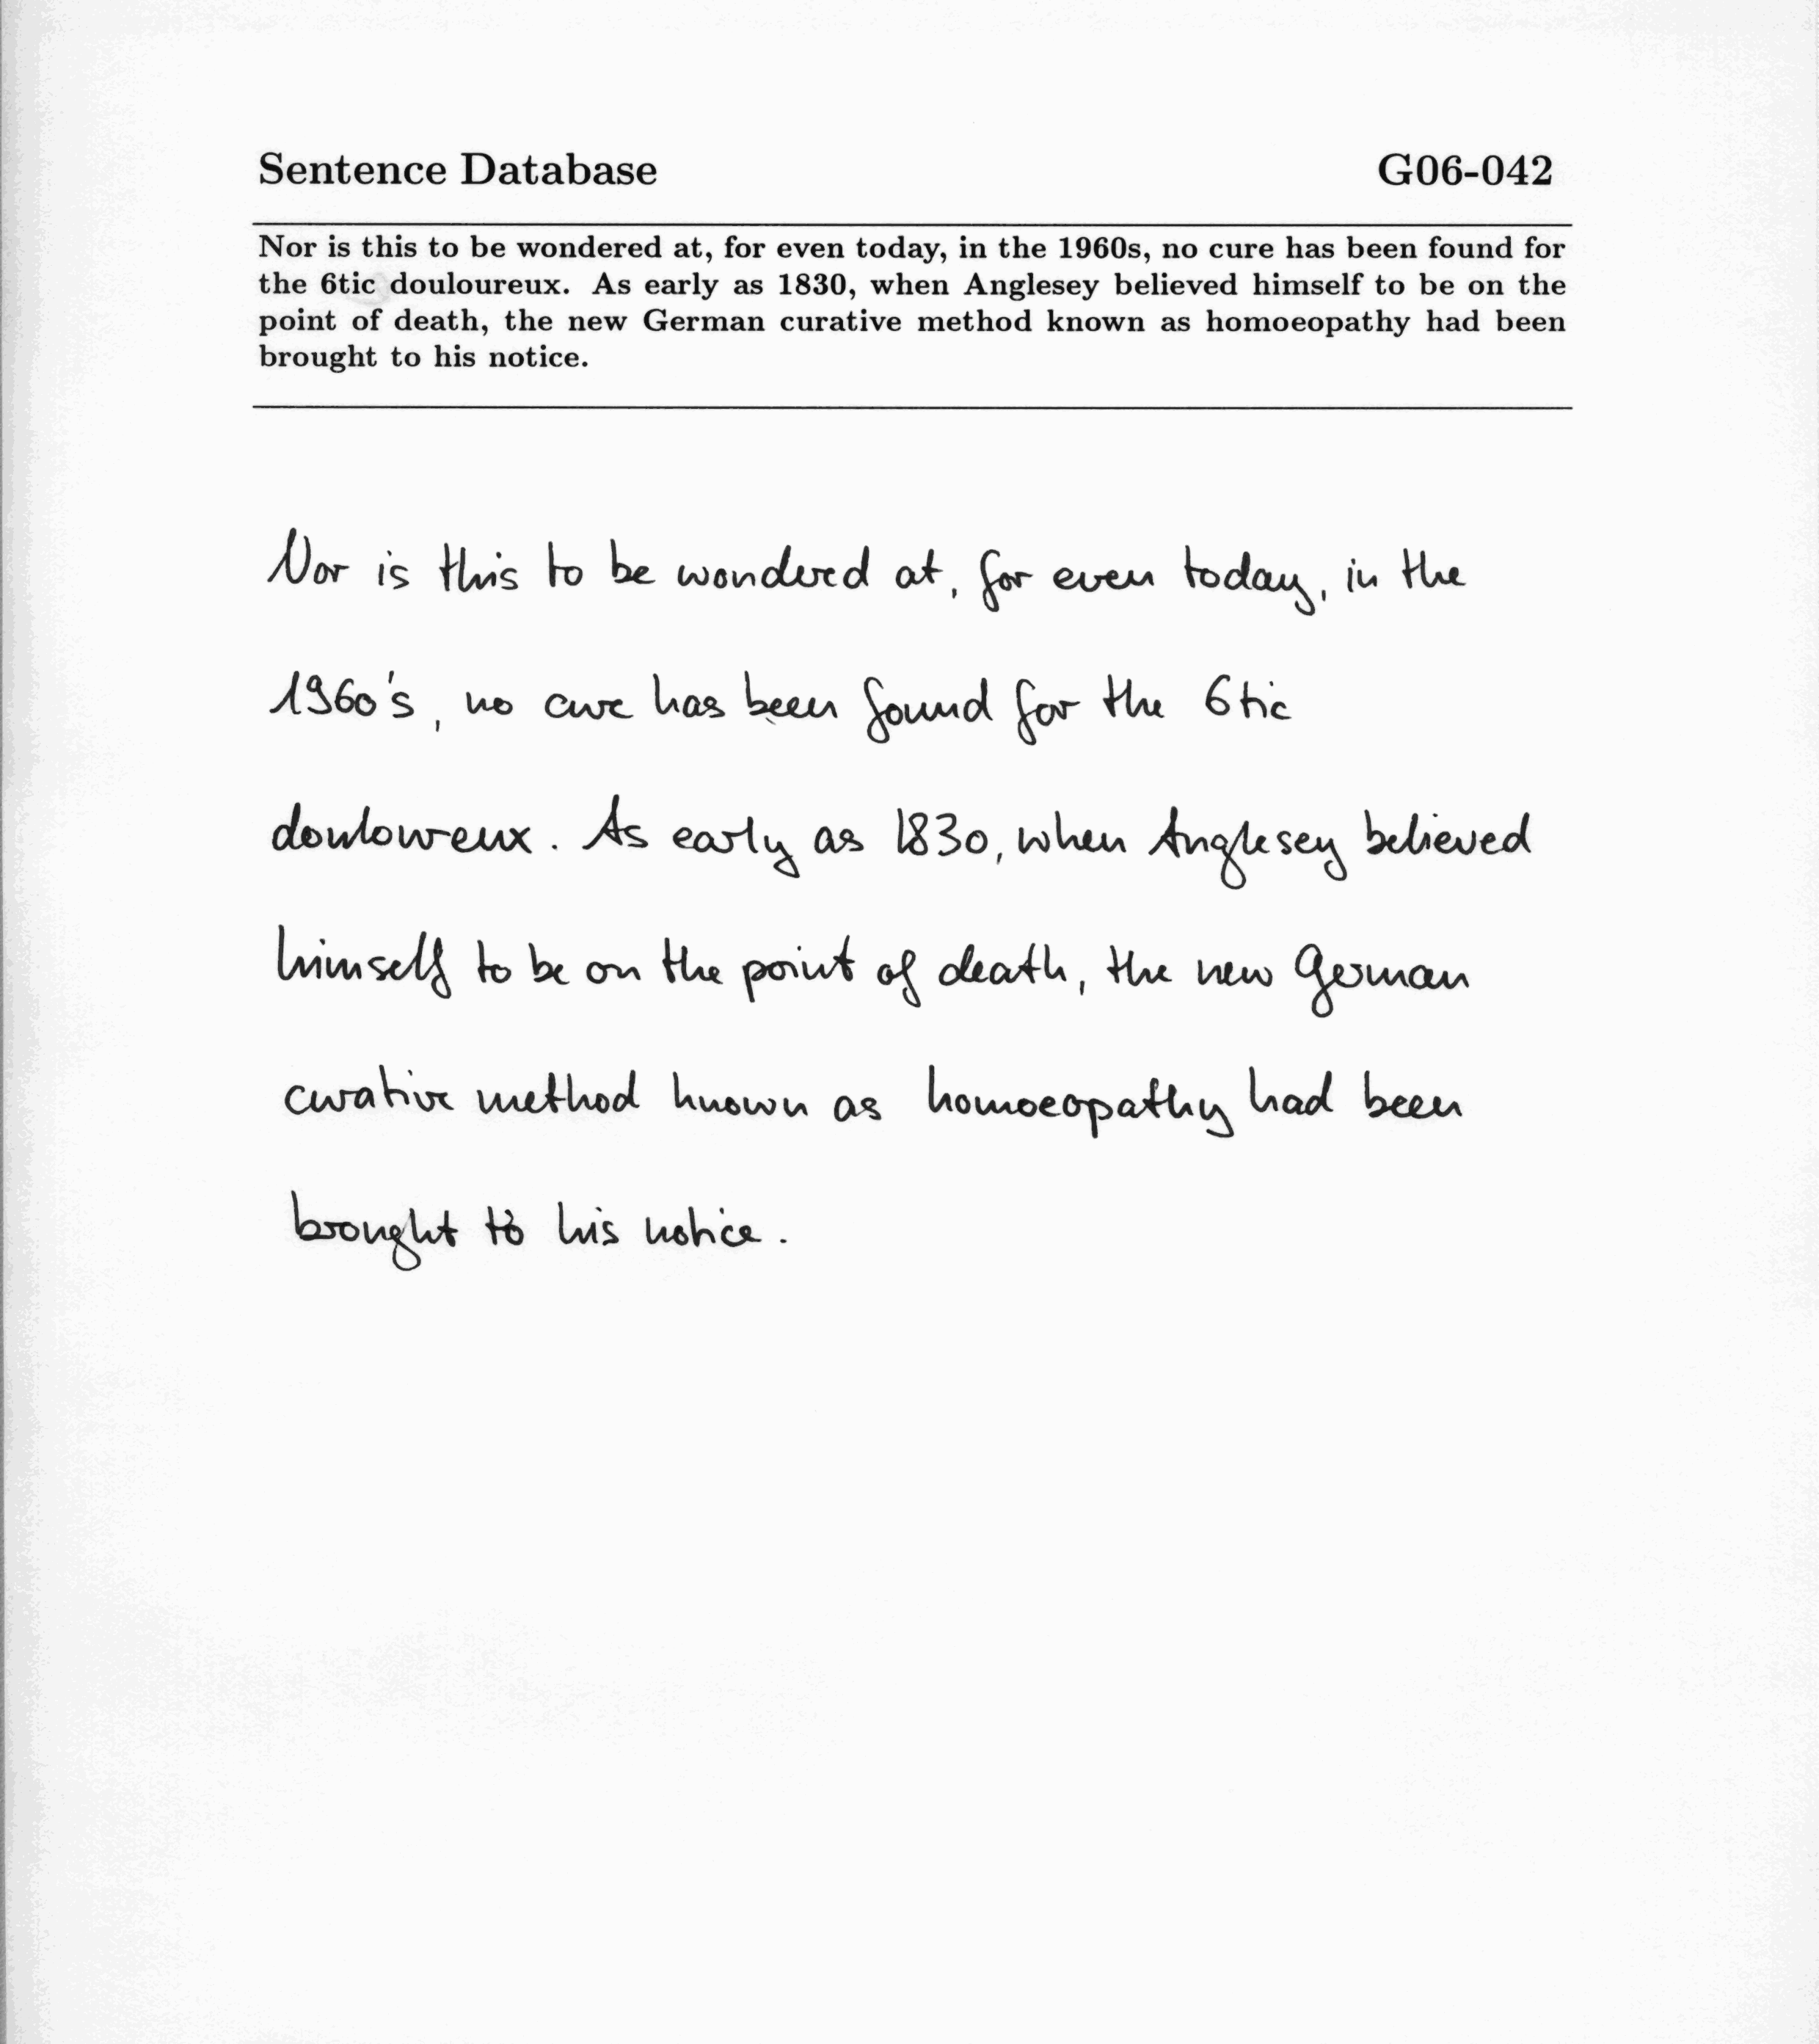 Sentence Database G06-042
Nor is this to be wondered at, for even today, in the 1960s, no cure has been found for
the 6tic douloureux. As early as 1830, when Anglesey believed himself to be on the
point of death, the new German curative method known as homoeopathy had been
brought to his notice.
Nor is this to be wondered at, for even today, in the
1960's, no cure has been found for the 6tic
douloureux. As early as 1830, when Anglesey believed
himself to be on the point of death, the new German
curative method known as homoeopathy had been
brought to his notice.